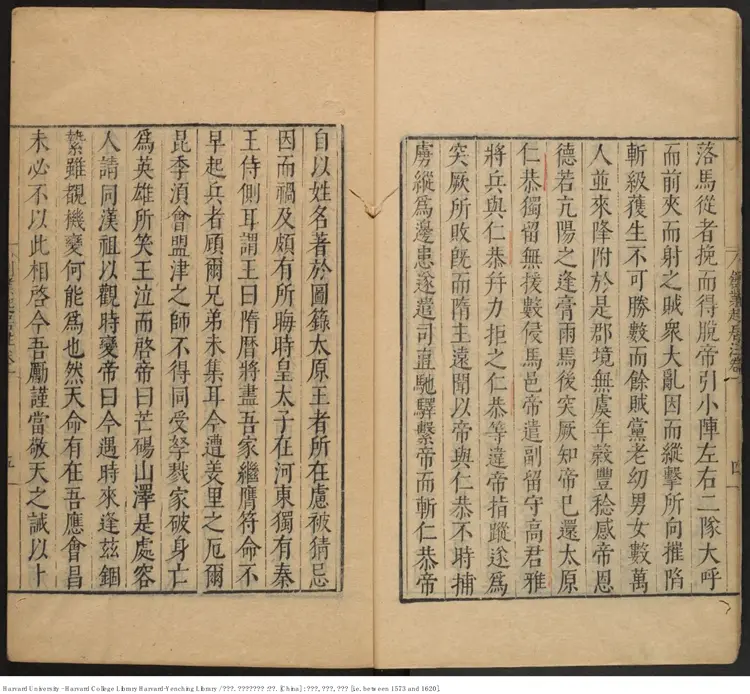 落馬從者挽而得脫帝引小陣左右二隊大呼
而前夾而射之賊衆大亂因而縱擊所向摧陷
斬級獲生不可勝數而餘賊黨老幼男女數萬
人並來降附於是郡境無虞年穀豐稔感帝恩
德若亢陽之逢膏雨焉後突厥知帝已還太原
仁恭獨留無援數侵馬邑帝遣副留守高君雅
將兵與仁恭并力拒之仁恭等違帝指蹤遂爲
突厥所敗旣而隋主遠聞以帝與仁恭不時捕
虜縱爲邊患遂遣司直馳驛繫帝而斬仁恭帝
自以姓名著於圖籙太原王者所在慮被猜忌
因而禍及頗有所晦時皇太子在河東獨有秦
王侍側耳謂王曰隋曆將盡吾家繼膺符命不
早起兵者顧爾兄弟未集耳今遭羑里之厄爾
昆季湏會盟津之師不得同受孥戮家破身亡
爲英雄所笑王泣而啓帝曰芒碭山澤是處容
人請同漢祖以觀時變帝曰今遇時來逢玆錮
縶雖覩機變何能爲也然天命有在吾應會昌
未必不以此相啓今吾勵謹當敬天之誡以卜
四
五
Harvard University - Harvard College Library Harvard-Yenching Library / ???. ??????? :??. [China] : ???, ???, ??? [i.e. between 1573 and 1620].